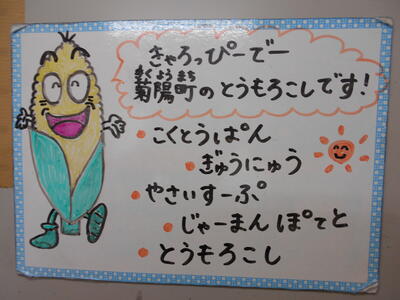 きゃろっぴーでー
きくようまち
菊陽町のとうもろこしです!
こくとうぱん
ぎゅうにゅう
やさいすーぷ
じゃーまんぽてと
とうもろこし